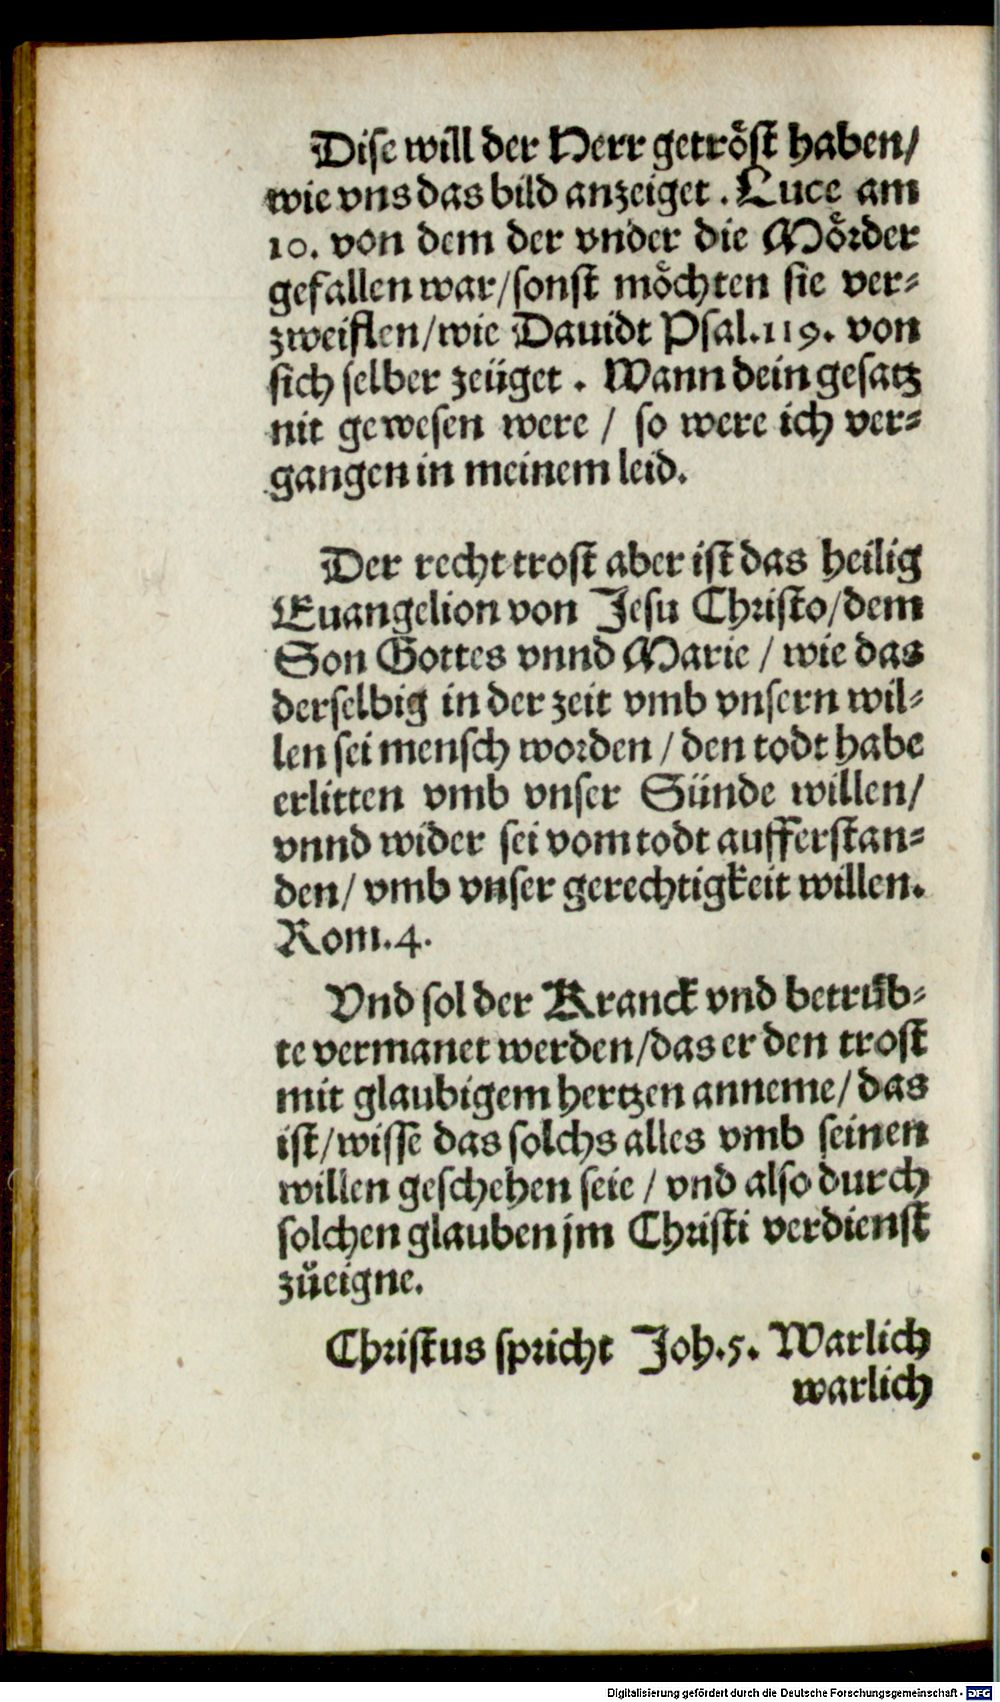 Dise will der Herr getröst haben/
wie vns das bild anzeiget. Luce am
10. von dem der vnder die Mörder
gefallen war/sonst möchten sie ver-
zweiflen/wie Dauidt Psal.119. von
sich selber zeüget. Wann dein gesatz
nit gewesen were / so were ich ver-
gangen in meinem leid.
Der recht trost aber ist das heilig
Euangelion von Jesu Christo/dem
Son Gottes vnnd Marie / wie das
derselbig in der zeit vmb vnsern wil-
len sei mensch worden / den todt habe
erlitten vmb vnser Sünde willen/
vnnd wider sei vom todt aufferstan-
den/ vmb vnser gerechtigkeit willen.
Rom.4.
Vnd sol der Kranck vnd betrüb-
te vermanet werden/das er den trost
mit glaubigem hertzen anneme/ das
ist/wisse das solchs alles vmb seinen
willen geschehen seie / vnd also durch
solchen glauben jm Christi verdienst
zůeigne.
Christus spricht Joh.5. Warlich
warlich
Digitalisierung gefördert durch die Deutsche Forschungsgemeinschaft - DFG